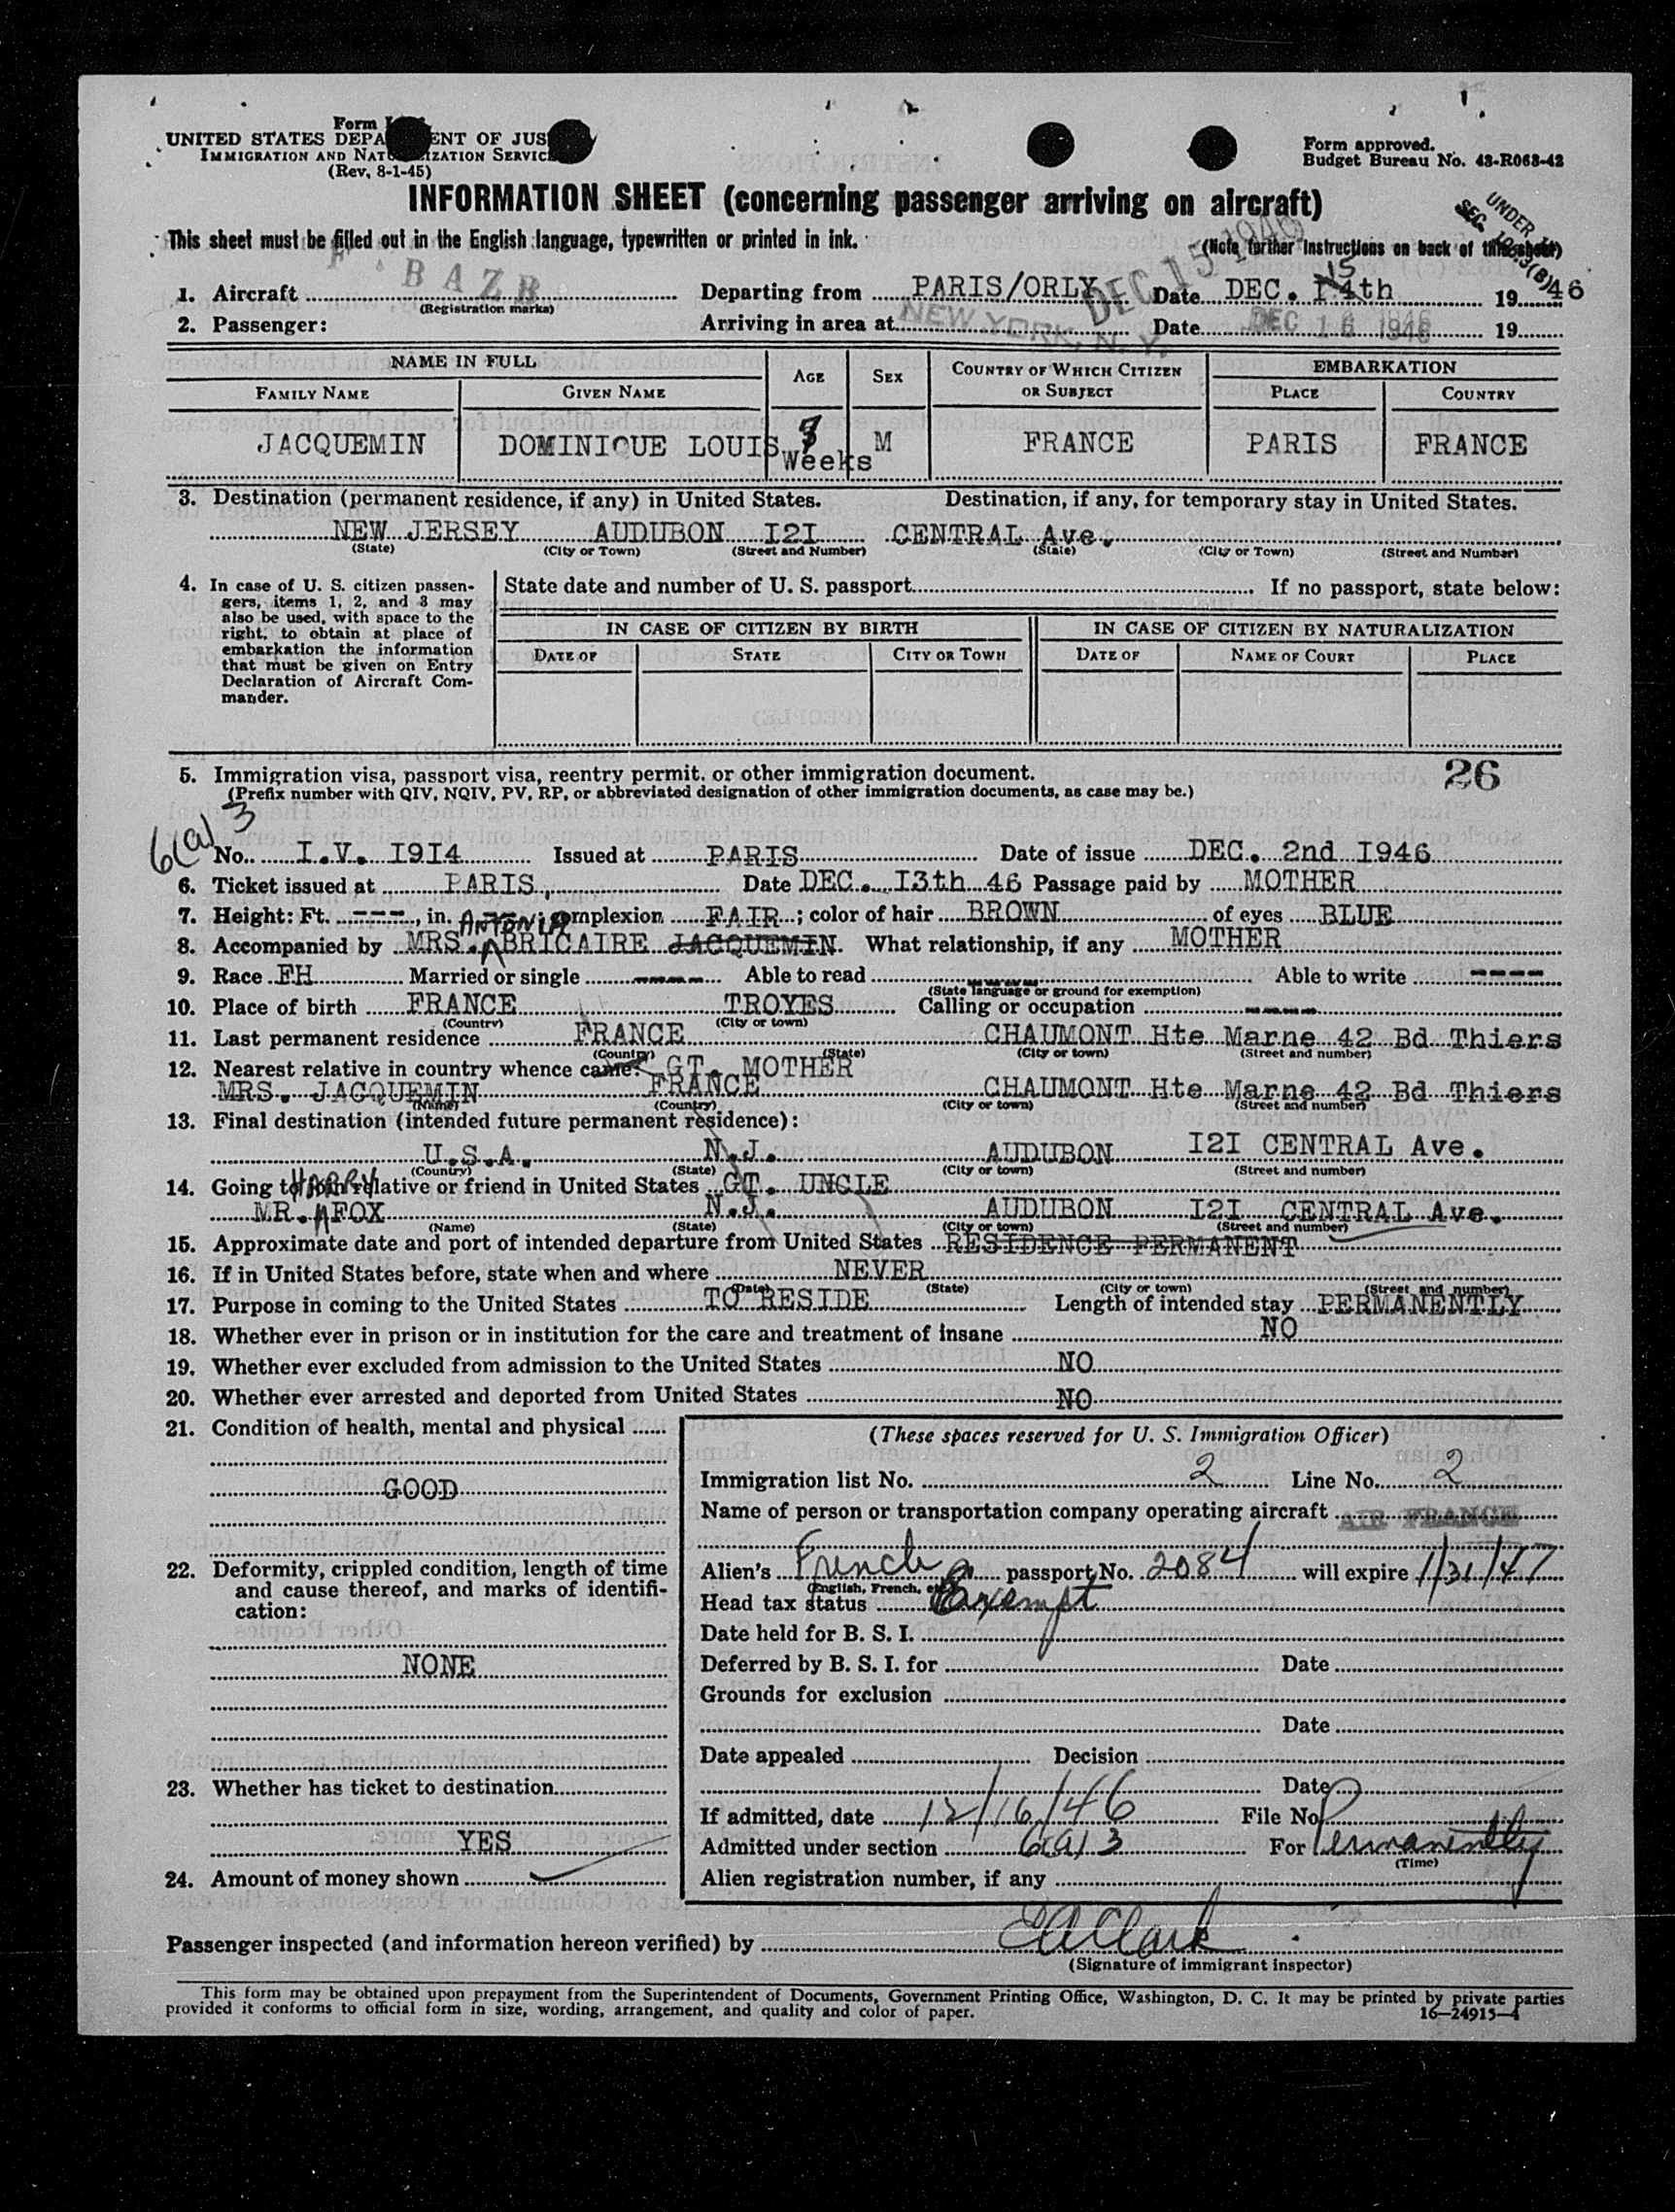 Form
UNITED STATES DEPA ENT OF JUS
IMMIGRATION AND NAT IZATION SERVIC
(Rev. 8-1-45)
Form approved.
Budget Bureau No. 43-R063-42
INFORMATION SHEET (concerning passenger arriving on aircraft)
UNDER
SEC.
This sheet must be filled out in the English language, typewritten or printed in ink.
(Note further instructions on back of this sheet)
F. BAZB
DEC 15 1946
1. Aircraft (Registration marks) Departing from PARIS/ORLY Date DEC. 14th 15 19 46
2. Passenger: Arriving in area at NEW YORK, N. Y. Date DEC 16 1946 19
NAME IN FULL AGE SEX COUNTRY OF WHICH CITIZEN OR SUBJECT EMBARKATION
FAMILY NAME GIVEN NAME PLACE COUNTRY
JACQUEMIN DOMINIQUE LOUIS Weeks M FRANCE PARIS FRANCE
3. Destination (permanent residence, if any) in United States. Destination, if any, for temporary stay in United States.
NEW JERSEY AUDUBON I2I CENTRAL Ave.
(State) (City or Town) (Street and Number) (State) (City or Town) (Street and Number)
4. In case of U. S. citizen passengers, items 1, 2, and 3 may also be used, with space to the right, to obtain at place of embarkation the information that must be given on Entry Declaration of Aircraft Commander.
State date and number of U. S. passport If no passport, state below:
IN CASE OF CITIZEN BY BIRTH IN CASE OF CITIZEN BY NATURALIZATION
DATE OF STATE CITY OR TOWN DATE OF NAME OF COURT PLACE
5. Immigration visa, passport visa, reentry permit, or other immigration document. 26
(Prefix number with QIV, NQIV, PV, RP, or abbreviated designation of other immigration documents, as case may be.)
6(a) 3
No. I.V. I9I4 Issued at PARIS Date of issue DEC. 2nd I946
6. Ticket issued at PARIS, Date DEC. I3th 46 Passage paid by MOTHER
7. Height: Ft. ---, in. ; complexion FAIR ; color of hair BROWN of eyes BLUE
ANTONIA
8. Accompanied by MRS. BRICAIRE JACQUEMIN. What relationship, if any MOTHER
9. Race FH Married or single ---- Able to read ---- Able to write ----
(State language or ground for exemption)
10. Place of birth FRANCE TROYES Calling or occupation ----
(Country) (City or town)
11. Last permanent residence FRANCE CHAUMONT Hte Marne 42 Bd Thiers
(Country) (State) (City or town) (Street and number)
12. Nearest relative in country whence came: GT. MOTHER
MRS. JACQUEMIN FRANCE CHAUMONT Hte Marne 42 Bd Thiers
(Name) (Country) (City or town) (Street and number)
13. Final destination (intended future permanent residence):
U.S.A. N.J. AUDUBON I2I CENTRAL Ave.
(Country) (State) (City or town) (Street and number)
HARRY
14. Going to join relative or friend in United States GT. UNCLE
MR. FOX N.J. AUDUBON I2I CENTRAL Ave.
(Name) (State) (City or town) (Street and number)
15. Approximate date and port of intended departure from United States RESIDENCE PERMANENT
16. If in United States before, state when and where NEVER
(Date) (State) (City or town) (Street and number)
17. Purpose in coming to the United States TO RESIDE Length of intended stay PERMANENTLY
18. Whether ever in prison or in institution for the care and treatment of insane NO
19. Whether ever excluded from admission to the United States NO
20. Whether ever arrested and deported from United States NO
21. Condition of health, mental and physical
GOOD
22. Deformity, crippled condition, length of time and cause thereof, and marks of identification:
NONE
23. Whether has ticket to destination
YES
24. Amount of money shown
(These spaces reserved for U. S. Immigration Officer)
Immigration list No. 2 Line No. 2
Name of person or transportation company operating aircraft AIR FRANCE
Alien's French passport No. 2084 will expire 1/31/47
(English, French, etc.)
Head tax status Exempt
Date held for B. S. I.
Deferred by B. S. I. for Date
Grounds for exclusion
Date
Date appealed Decision
Date
If admitted, date 12/16/46 File No.
Admitted under section 6(a) 3 For Permanently
(Time)
Alien registration number, if any
Passenger inspected (and information hereon verified) by EA Clark
(Signature of immigrant inspector)
This form may be obtained upon prepayment from the Superintendent of Documents, Government Printing Office, Washington, D. C. It may be printed by private parties
provided it conforms to official form in size, wording, arrangement, and quality and color of paper. 16—24915-4